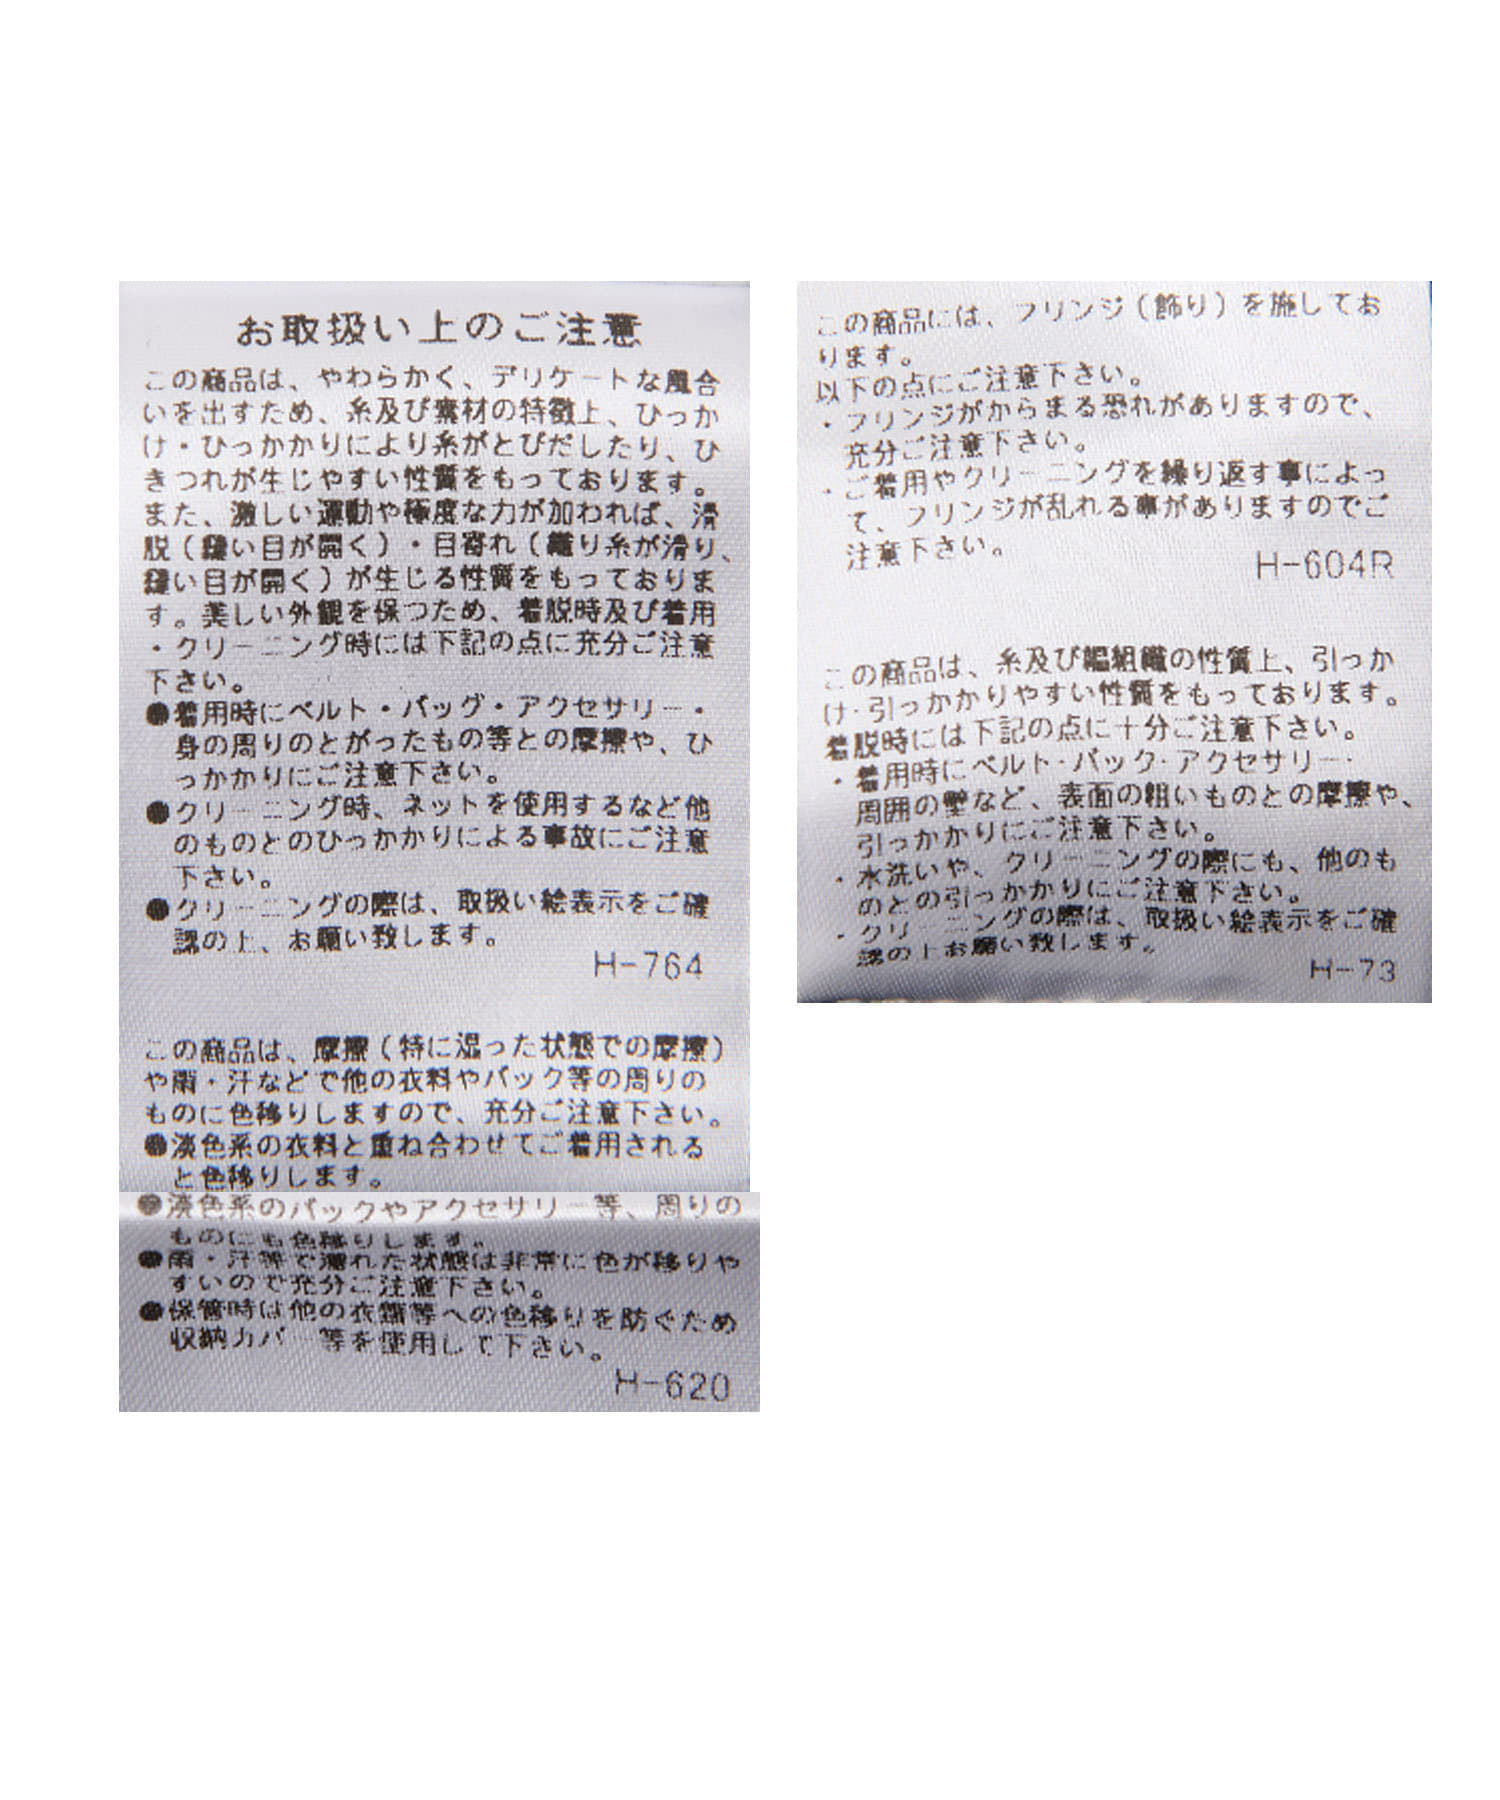 お取扱い上のご注意
この商品は、やわらかく、デリケートな風合
いを出すため、糸及び素材の特徴上、ひっか
け・ひっかかりにより糸がとびだしたり、ひ
きつれが生じやすい性質をもっております。
また、激しい運動や極度な力が加われば、滑
脱（縫い目が開く）・目寄れ（織り糸が滑り、
縫い目が開く）が生じる性質をもっておりま
す。美しい外観を保つため、着脱時及び着用
・クリーニング時には下記の点に充分ご注意
下さい。
●着用時にベルト・バッグ・アクセサリー・
身の周りのとがったもの等との摩擦や、ひ
っかかりにご注意下さい。
●クリーニング時、ネットを使用するなど他
のものとのひっかかりによる事故にご注意
下さい。
●クリーニングの際は、取扱い絵表示をご確
認の上、お願い致します。
H-764
この商品は、摩擦（特に湿った状態での摩擦）
や雨・汗などで他の衣料やバック等の周りの
ものに色移りしますので、充分ご注意下さい。
●淡色系の衣料と重ね合わせてご着用される
と色移りします。
●淡色系のバックやアクセサリー等、周りの
ものにも色移りします。
●雨・汗等で濡れた状態は非常に色が移りや
すいので充分ご注意下さい。
●保管時は他の衣類等への色移りを防ぐため
収納カバー等を使用して下さい。
H-620
この商品には、フリンジ（飾り）を施してお
ります。
以下の点にご注意下さい。
・フリンジがからまる恐れがありますので、
充分ご注意下さい。
・ご着用やクリーニングを繰り返す事によっ
て、フリンジが乱れる事がありますのでご
注意下さい。
H-604R
この商品は、糸及び編組織の性質上、引っか
け・引っかかりやすい性質をもっております。
着脱時には下記の点に十分ご注意下さい。
・着用時にベルト・バック・アクセサリー・
周囲の壁など、表面の粗いものとの摩擦や、
引っかかりにご注意下さい。
・水洗いや、クリーニングの際にも、他のも
のとの引っかかりにご注意下さい。
・クリーニングの際は、取扱い絵表示をご確
認の上お願い致します。
H-73